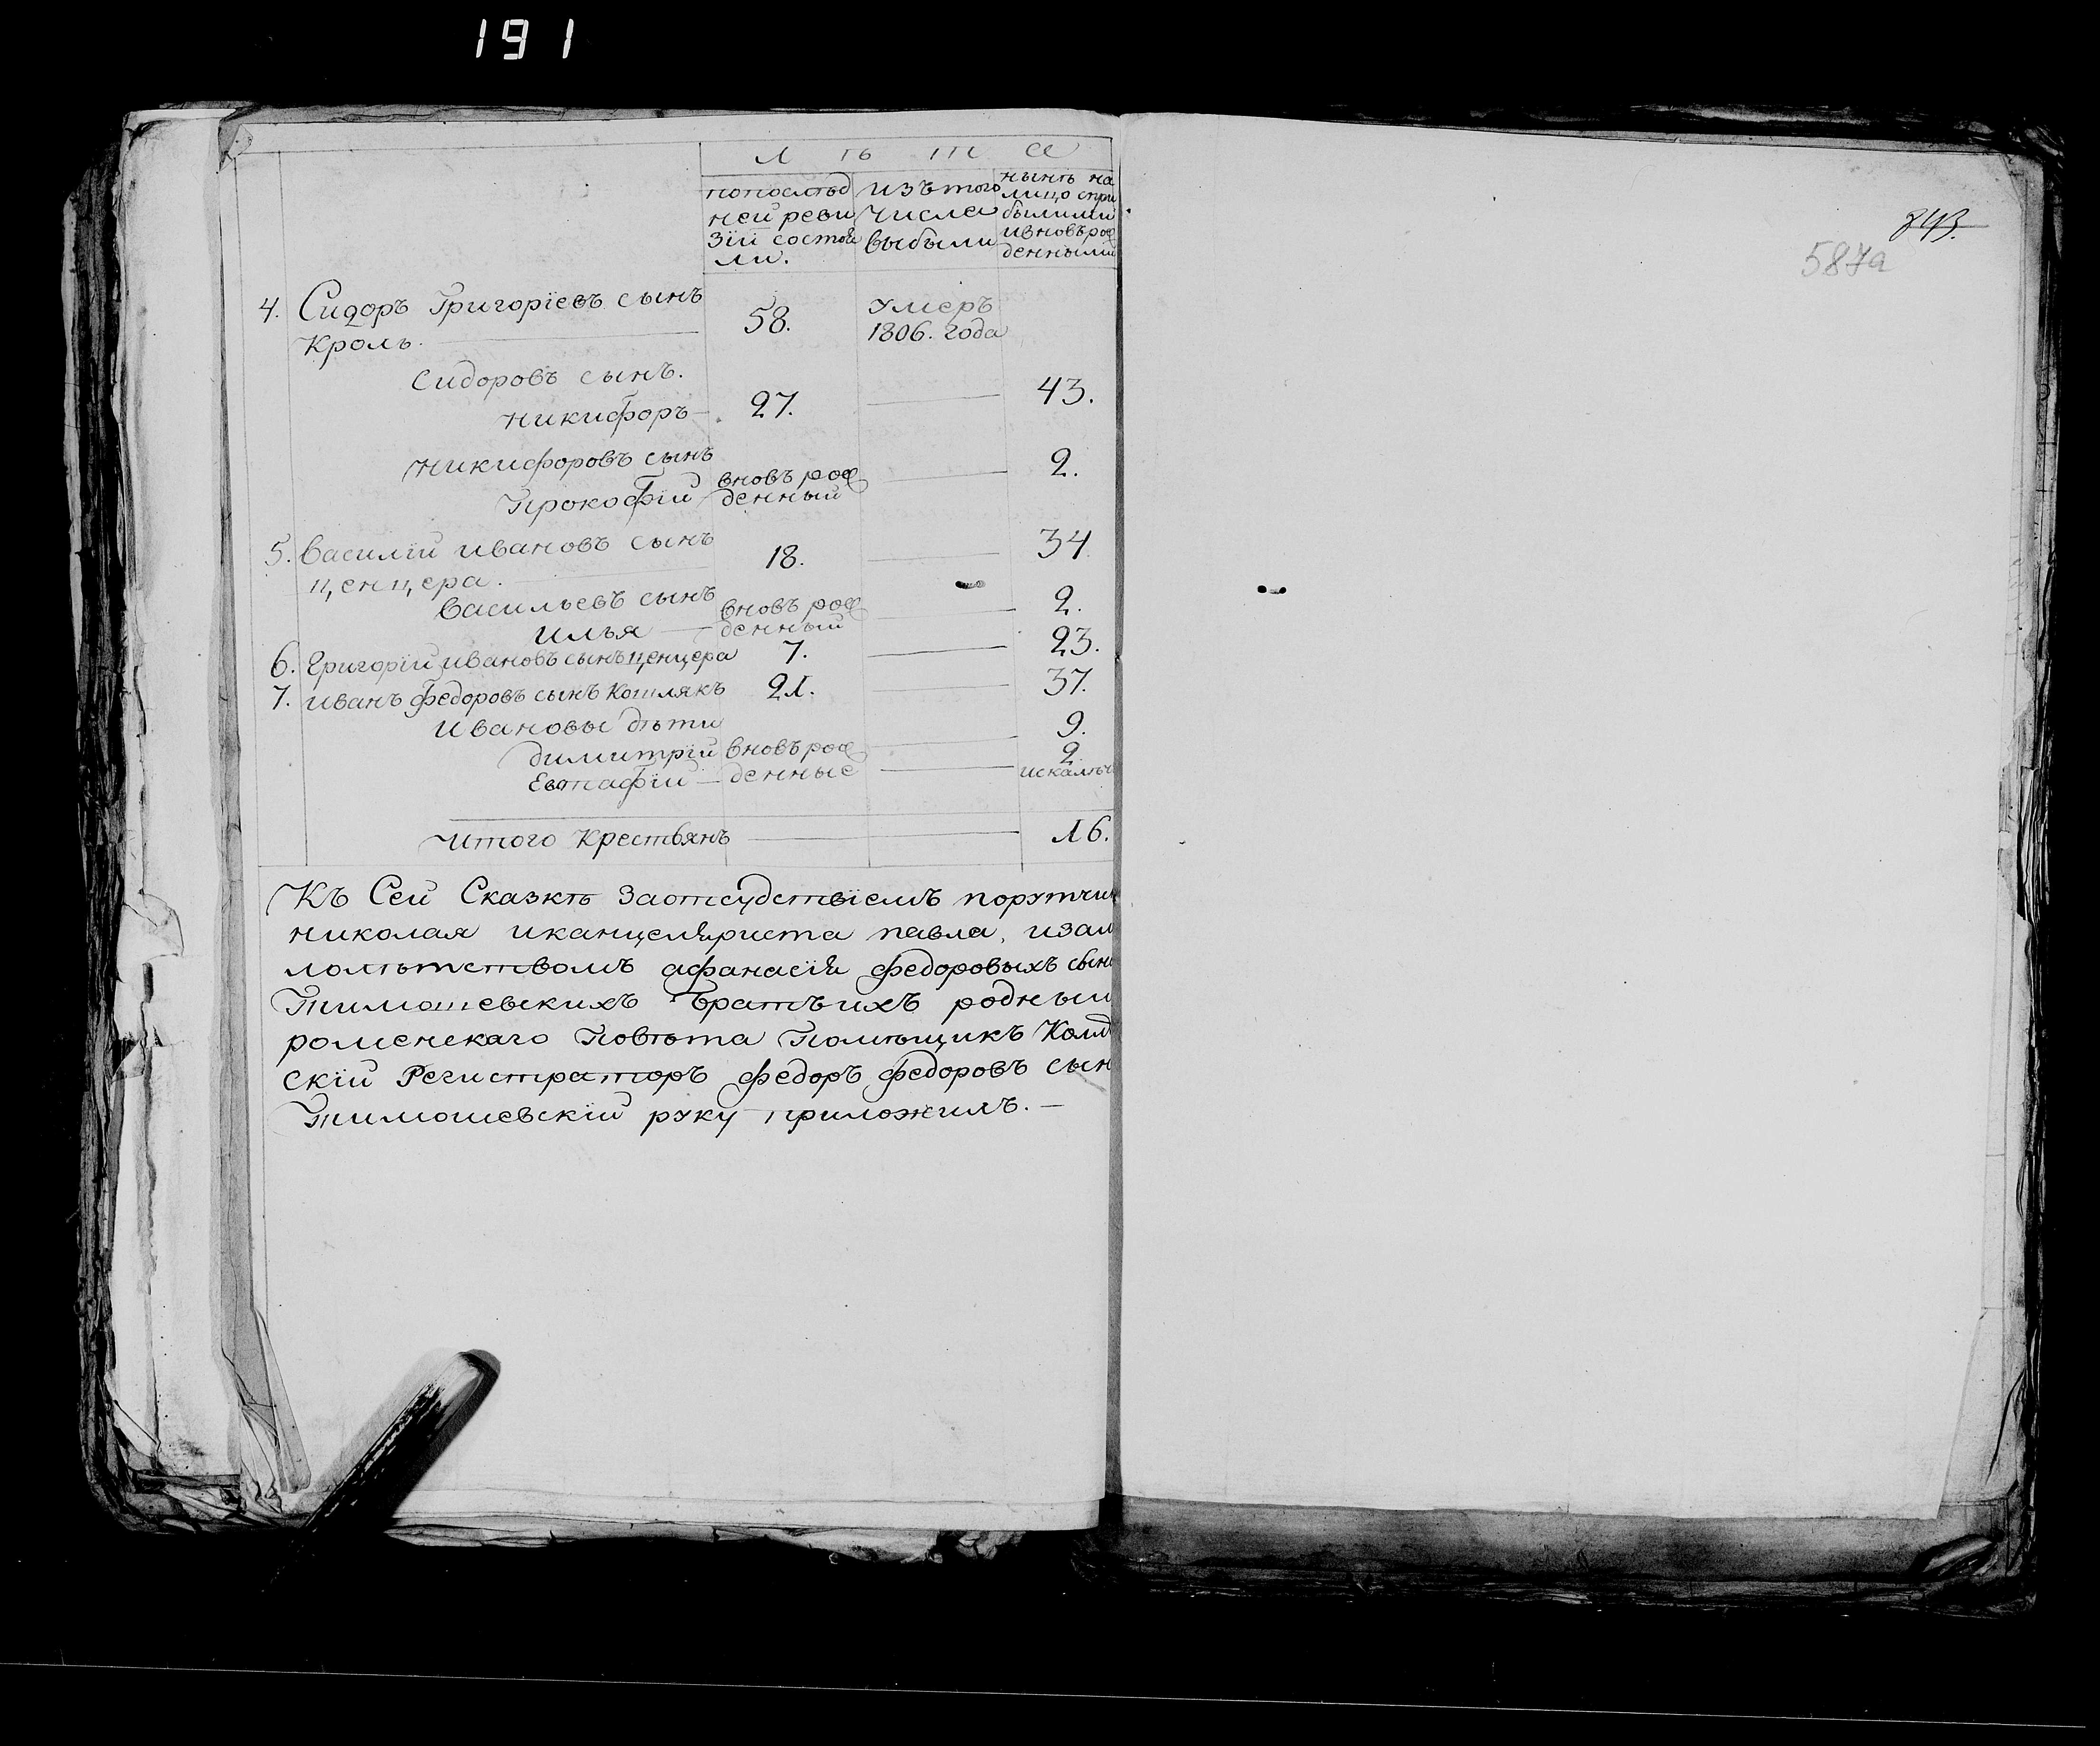 191
Л ѣ т а
попослѣд
ней реви
зіи состоя
ли.
изътого
числа
выбыли
нынѣ на
лицо спри
былыми
ивновьрож
денными
893.
587а
4. Сидоръ Григоріевъ сынъ
Кроль. 58. умеръ
1806. года
Сидоровъ сынъ.
Никифоръ 27. 43.
Никифоровъ сынъ
Прокофій вновь рож
денный 2.
5. Василій ивановъ сынъ
ценцера. 18. 34.
Васильевъ сынъ
илья вновь рож
денный 2.
6. Григорій ивановъ сынъ ценцера 7. 23.
7. иванъ федоровъ сынъ кошлякъ 21. 37.
Ивановы дѣти
димитрій вновьрож 9.
Евтафій денные 2
искалѣч
Итого Крестьянъ 16.
Къ Сей Сказкѣ Заотсудствіемъ порутчик
николая иканцеляриста павла, изам
лолѣтством афанасія федоровыхъ сыно
Тимошевскихъ братъихъ родный
роменскаго Повѣта Помѣщикъ Колле
скій Регистраторъ федоръ федоровъ сын
Тимошевскій руку приложилъ.